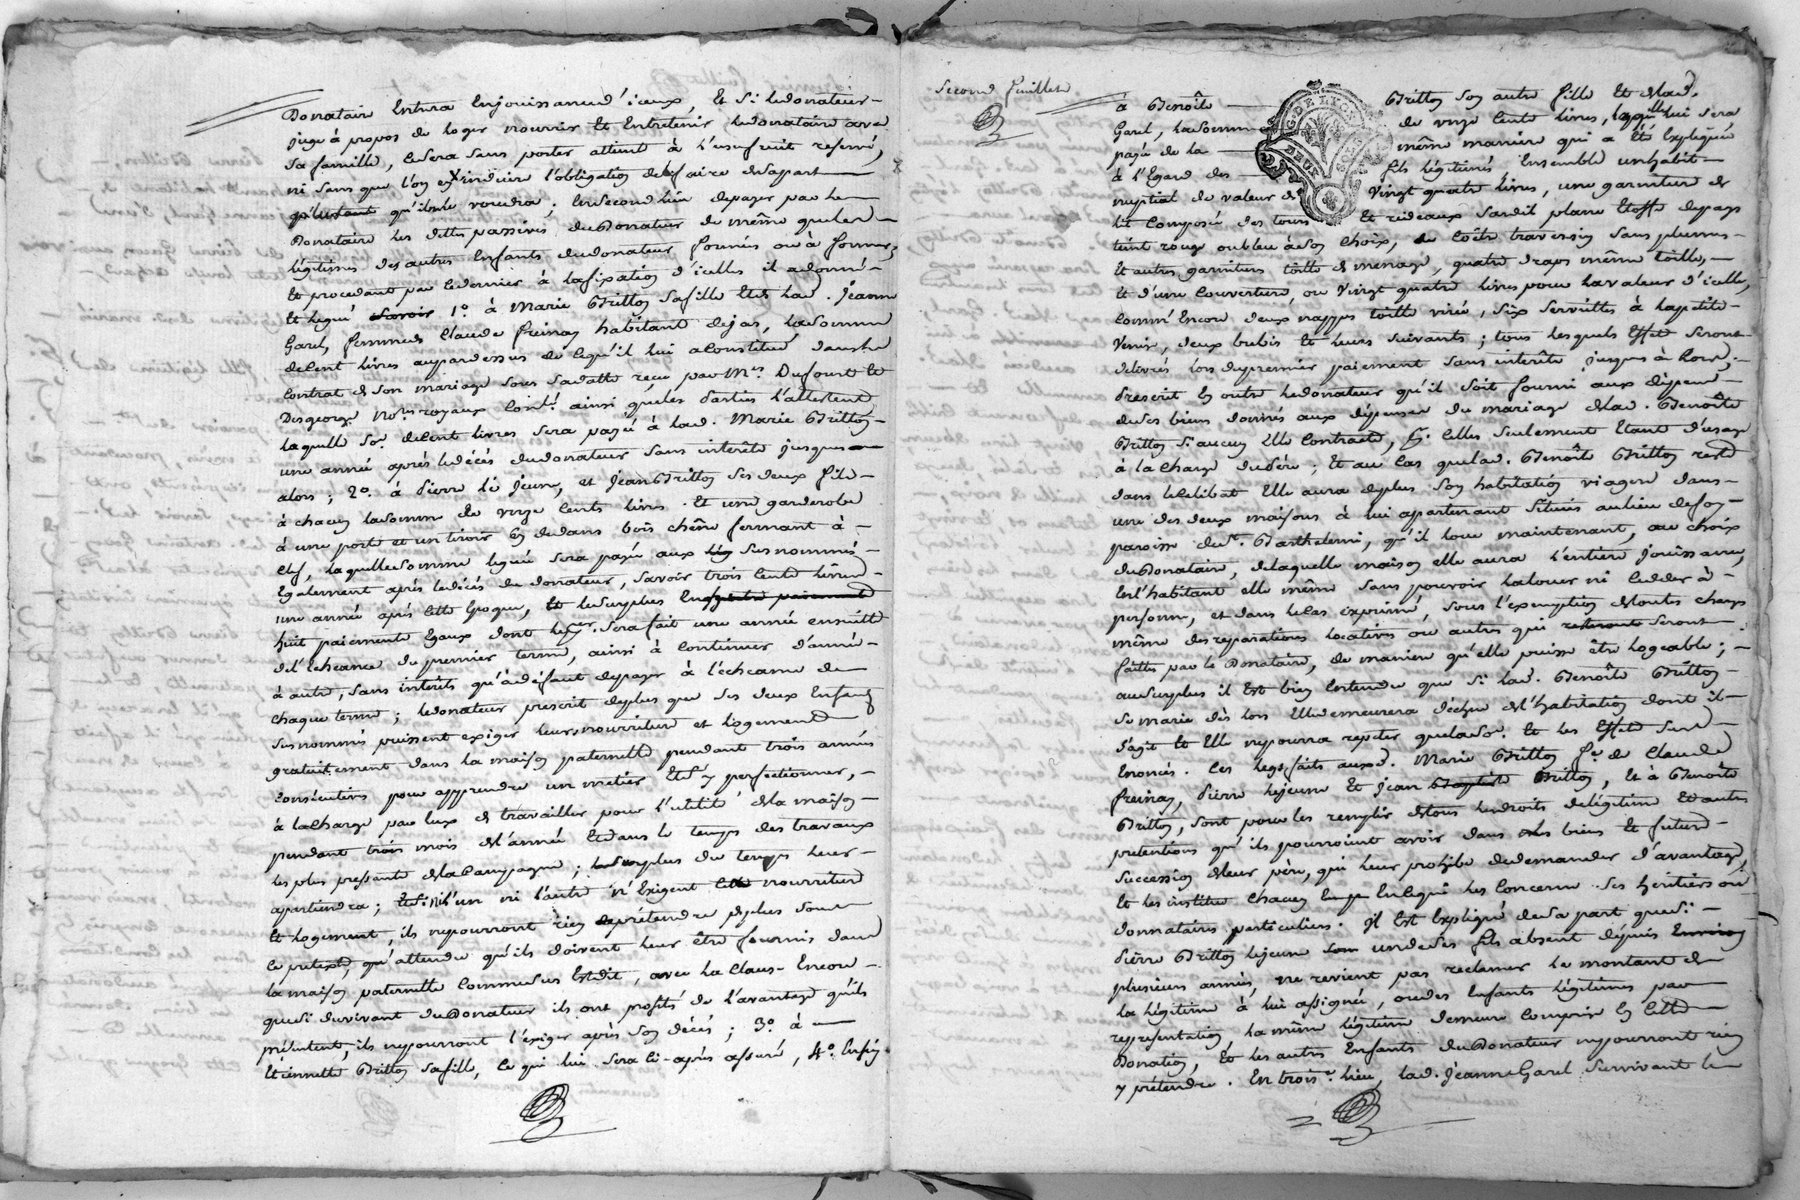 Donataire Entrera Enjouissanced'iceux, Et Si ledonateur
juge à propos de loger nourrir Et Entretenir, ledonataire avec
Sa famille, cesera Sans porter atteint à l'usufruit reservé,
ni Sans que l'on en induire l'obligation delefaire desapart
qu'autant qu'il le voudra ; Ensecond lieu depayer par le
Donataire Les dettes passives duDonateur de même queles
légitimes desautres Enfants dudonateur fournis ou à fournir,
Et procedant par cedernier à lafixation d'icelles il adonné
Et legué Savoir 1º. à Marie Britton Safille Et de lad. Jeanne
Garel, femmede Claude freinay habitant dejas, lasomme
decent livres aupardessus de cequ'il lui aConstitué dansle
Contrat de Son mariage Sous Sadatte recu par Mes. Dufournel Et
Desgeorge Nores. royaux ainsi queles Parties l'attestent
laquelle Soe. decent livres Sera payée à lad. Marie Britton
une année après ledécés dudonateur Sans interêts jusques
alors ; 2º. à Pierre le jeune, et Jean Britton Ses deux fils
à chacun lasomme de onze Cents livres. Et une garderobe
à une porte et un tiroir En dedans bois chêne fermant à
clef, laquelle somme leguée Sera payée aux Susnommés
Egalement après ledécés du donateur, Savoir trois Cents livres
une année après Cette Epoque, Et lesurplus En
huit paiements Egaux dont le per. Sera fait une année ensuitte
del'Echeance du premier terme, ainsi à Continuer d'année
à autre, Sans interêts qu'àdéfaut depayer à l'écheance de
chaque terme ; ledonateur prescrit deplus que Ses deux Enfans
Susnommés puissent exiger leur nourriture et logement
gratuitement dans la maison paternelle pendant trois années
Consécutives pour apprendre un métier EtS'y perfectionner,
à lacharge par Eux de travailler pour l'utilité dela maison
pendant trois mois del'année Etdans le temps des travaux
les plus pressants delaCampagne ; lesurplus du temps leur
apartiendra ; EtSi l'un ni l'autre n'Exigent nourriture
Et logement, ils nepourront rien prétendre deplus Sous
Ce pretexte, qu'attendu qu'ils doivent leur être fournis dans
la maison paternelle Comme dessus Estdit, avec la Clause Encore
quesi duvivant duDonateur ils ont profité de l'avantage qu'ils
présentent, ils nepourront l'exiger après Son décés ; 3º. à
Etiennette Britton Safille, Ce qui lui Sera Ci-après assuré, 4º. Enfin
Second feuillet
à Benoîte Britton Son autre fille Et delad.
Garel, laSomme de onze Cents livres, laquelle lui Sera
payée de la même maniere qui a Eté Expliquée
à l'Egard des fils légitimés Ensemble unhabit
nuptial de valeur de Vingt quatre livres, une garniture de
lit Composée des tours Et rideaux Sardit plane Etoffe depays
teint rouge oubleu àson Choix, de Coêtre traversin Sans plumes
Et autres garnitures toille de menage, quatre draps même toille,
Et d'une Couverture, ou Vingt quatre livres pour lavaleur d'icelle,
Comme Encore deux nappes toille virée, Six Serviettes à lapetite
Venise, deux brebis Et leurs Suivants ; tous lesquels Effets Seront
delivrés lors dupremier paiement Sans interêts jusques à lors ;
Prescrit En outre ledonateur qu'il Soit fourni aux dépens
deses biens donnés aux dépenses du mariage delad. Benoîte
Britton Si aucun Elle Contracte, Et. Celles Seulement Etant d'usage
à la Charge dupére ; Et au Cas quelad. Benoîte Britton reste
dans leCelibat Elle aura deplus Son habitation viagere dans
une des deux maisons à lui appartenant Situées aulieu deson
paroisse deSt. Barthelemi, qu'il loue maintenant, au choix
duDonataire, delaquelle maison elle aura l'entiere jouissance,
En l'habitant elle même Sans pouvoir lalouer ni Cedder à
personne, et dans leCas exprimé, Sous l'exemption detoutes charges
même desreparations locatives ou autres qui Seront
faittes par le Donataire, de maniere qu'elle puisse être logeable ;
auSurplus il Est bien Entendu que Si lad. Benoîte Britton
Se marie dès lors Elledemeurera déchue del'habitation dont il
S'agit Et Elle nepourra repeter quelaSoe. Et les Effets Sus
Enoncés. Ces legs faits auxd. Marie Britton fe. de Claude
freinay, Pierre lejeune Et Jean Baptiste Britton, Et à Benoîte
Britton, Sont pour les remplir detous lesdroits delégitime Et autres
pretentions qu'ils pourroient avoir dans Ses biens Et future
Succession deleur pére, qui leur prohibe dedemander d'avantage,
Et les institue Chacun En Cequi les Concerne Ses heritiers ou
donnataires particuliers. Il Est Expliqué desa part queSi
Pierre Britton lejeune undeses fils absent dépuis
plusieurs années, ne revient pas reclamer le montant de
la légitime à lui assignée, oudes Enfants légitimes par
representation la même légitime demeure Comprise En Cette
Donation, Et les autres Enfants duDonateur nepourront rien
y prétendre. En troise. lieu, lad. Jeanne Garel Survivant le